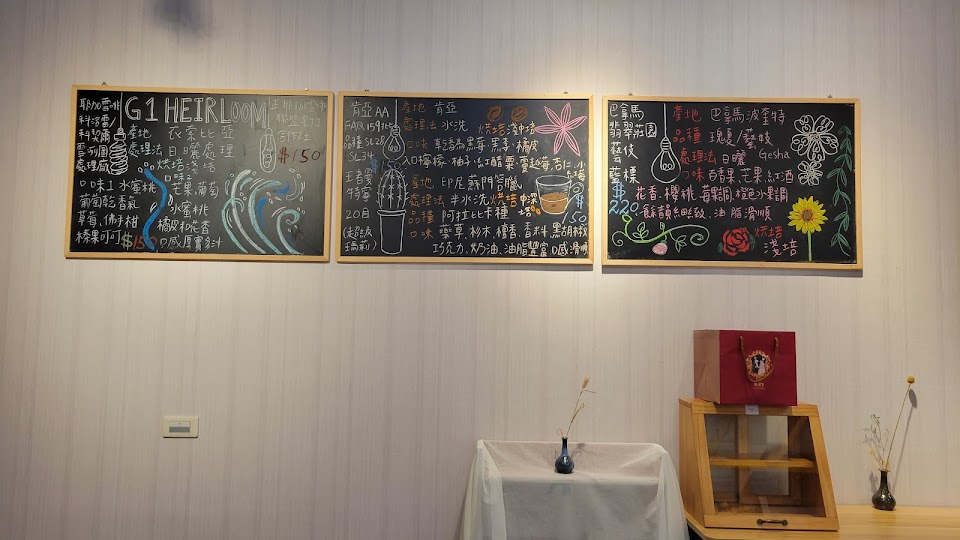 耶加雪啡
G1 HEIRLOOM
產地 衣索比亞
處理法 日曬處理
處理廠
烘培 淺培
口味1 水蜜桃
葡萄乾香氣
草莓、佛手柑
榛果叮叮
$150
口味2
芒果 葡萄
水蜜桃
橘皮和花香
口感厚實多汁
$150
肯亞AA
品種SL28
SL34
產地 肯亞
處理法 水洗 烘培 淺中培
口味 乾活烏黑莓 黑李 橘皮
入口檸檬、柚子、紅醋栗 蔓越莓 杏仁、小
特寧
20目
產地 印尼蘇門答臘
處理法 半水洗 烘培 中深
品種 阿拉比卡種
口味 藥草、杉木、檀香、香料、黑胡椒
巧克力、奶油、油脂豐富 口感滑順
巴拿馬
翡翠莊園
藝伎
藍標
$220
產地 巴拿馬波奎特
品種 瑰夏/藝妓
Gesha
處理法 日曬
口味 百香果、芒果、紅酒
花香、櫻桃、莓果調、橙色水果調
餘韻長明絃、油脂滑順
烘培
淺培